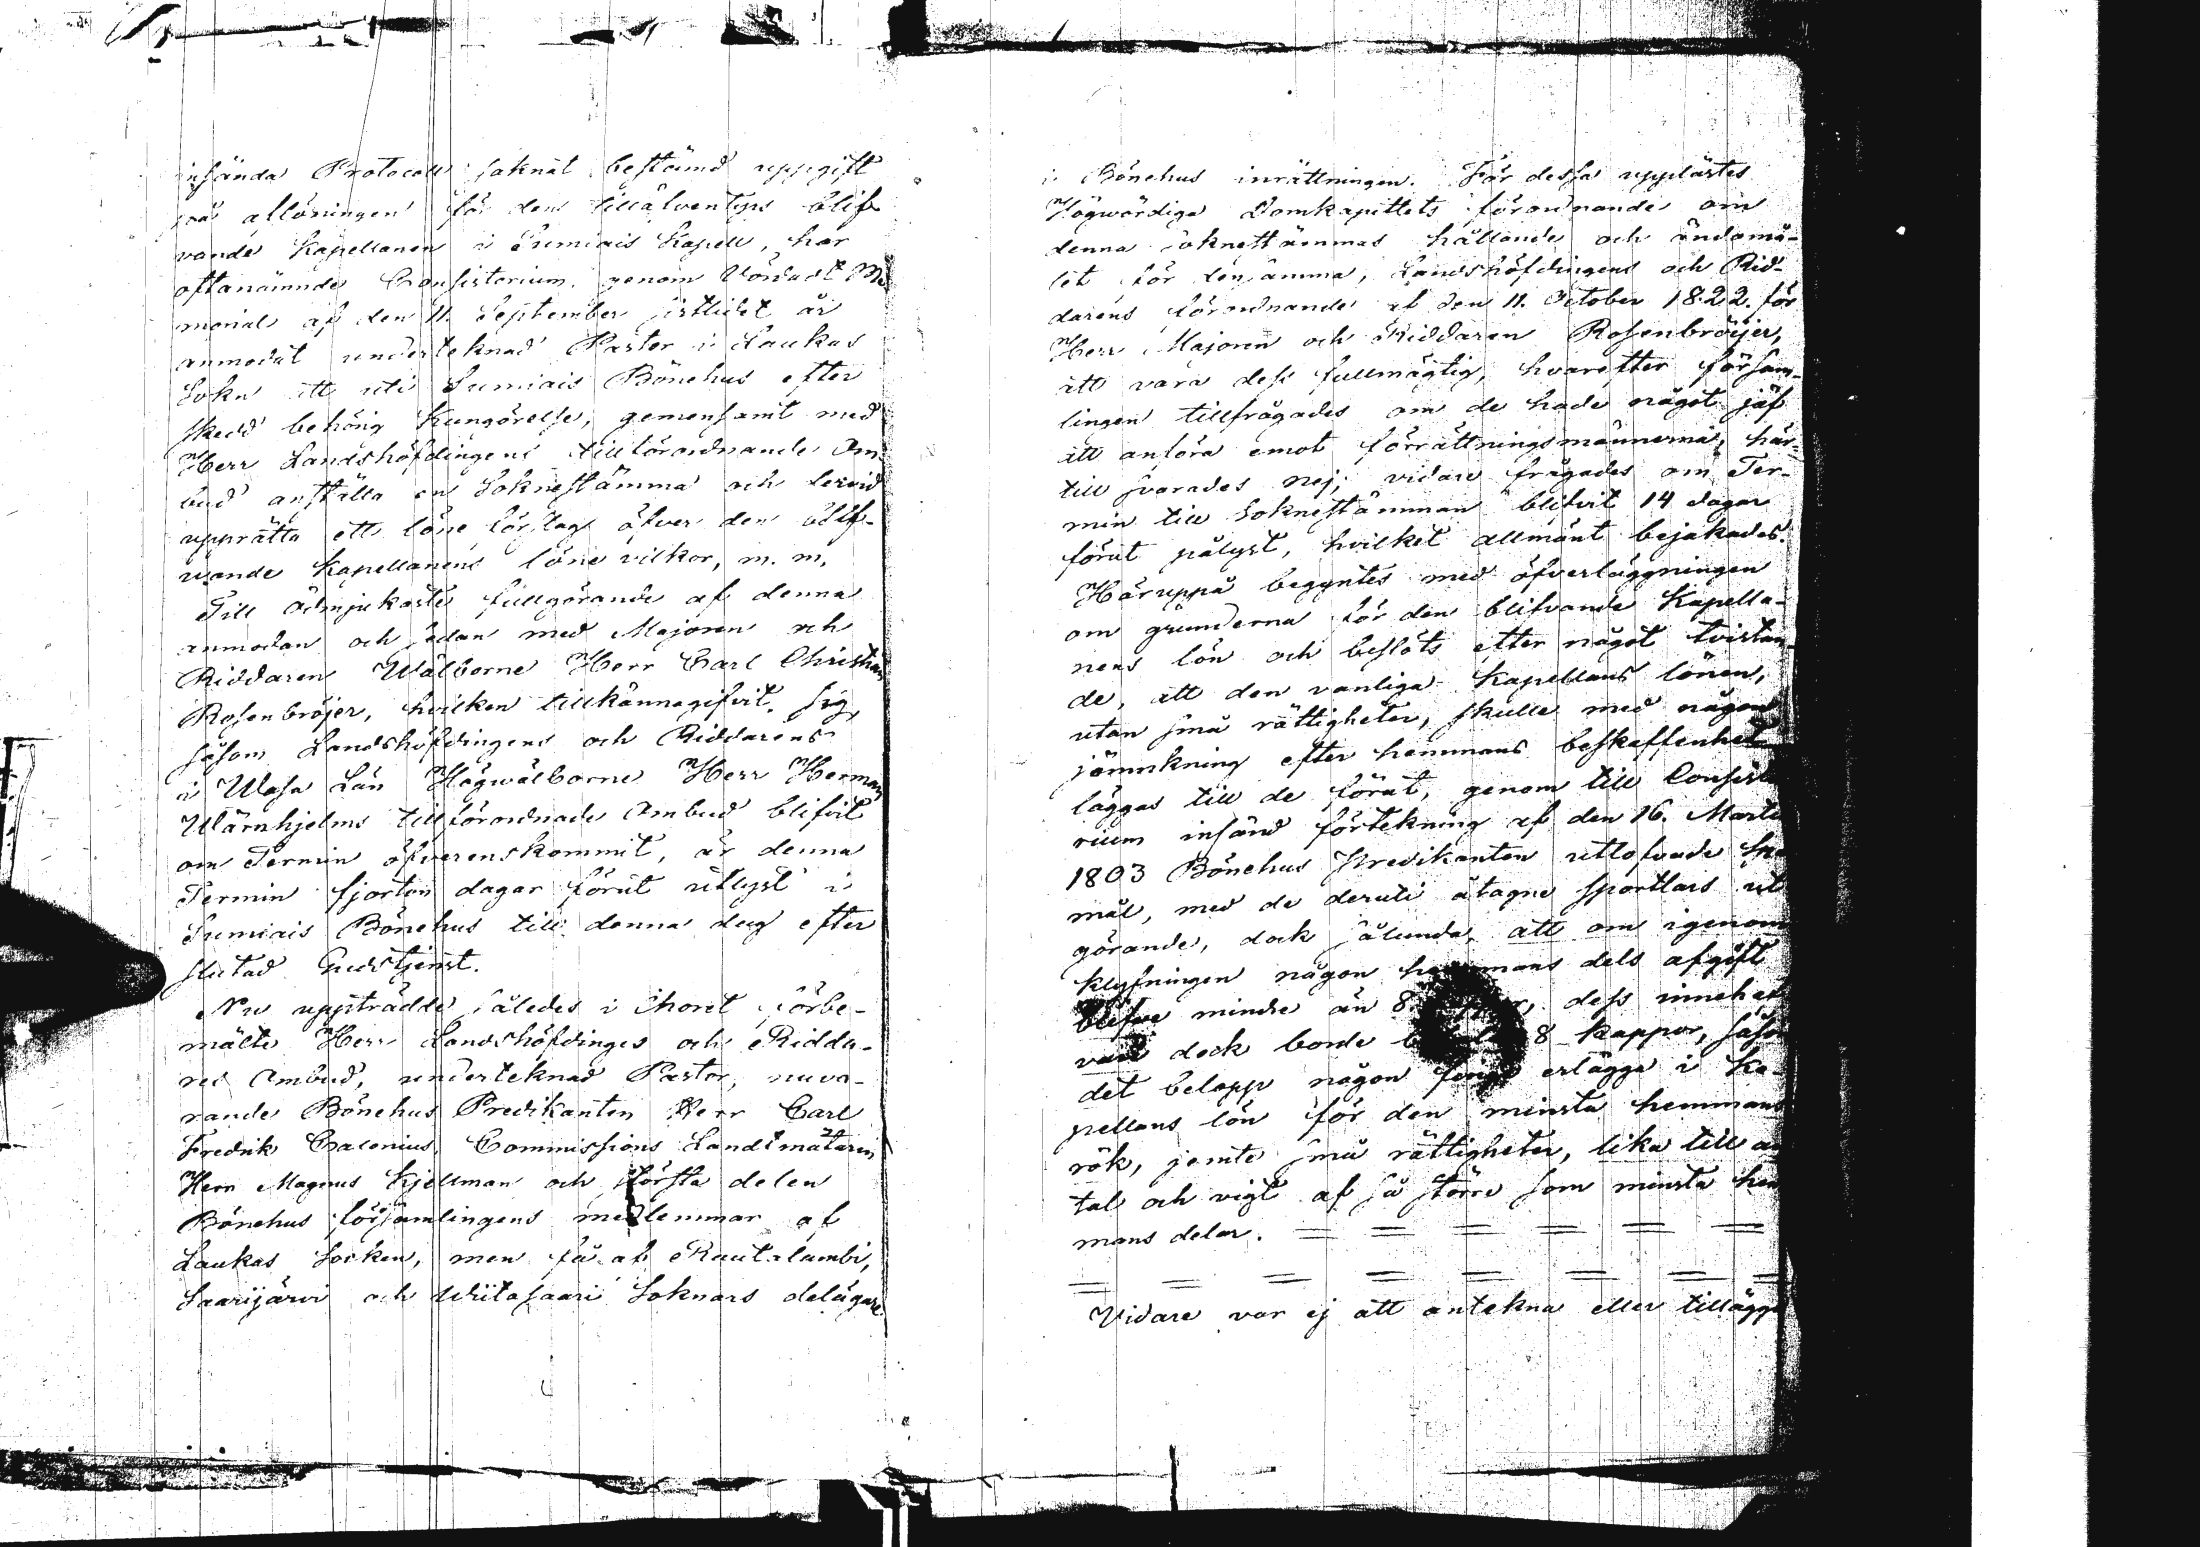 insända Protocoll saknat bestämd uppgift
på aflöningen för den tilläfventyrs blif
vande Kapellanen i Sumiais Kapell, har
oftanämnde Consistorium genom Vördadt Me
morial af den 11. September sistlidet år
anmodat underteknad Pastor i Laukas
Sokn att uti Sumiais Bönehus efter
skedd behörig Kungörelse, gemensamt med
Herr Landshöfdingens tillförordnande Om
bud anställa en Soknestämma och dervid
upprätta ett löne förslag öfver den blif-
wande Kapellanens löne vilkor, m. m.
Till ödmjukaste fullgörande af denna
anmodan och sedan med Majoren och
Riddaren Wälborne Herr Carl Christian
Rosenbröijer, hvilken tillkännagifvit sig,
såsom Landshöfdingens och Riddarens
i Wasa Län Högwälborne Herr Herman
Wärnhjelms tillförordnade Ombud blifvit
om Termin öfverenskommit, är denna
Termin fjorton dagar förut utlyst i
Sumiais Bönehus till denna dag efter
slutad Gudstjenst.
Nu uppträdde således i Choret förbe-
mälte Herr Landshöfdinges och Ridda-
res Ombud, underteknad Pastor, nuva-
rande Bönehus Predikanten Herr Carl
Fredrik Calonius, Commissions Landtmätaren
Herr Magnus Kjellman och största delen
Bönehus församlingens medlemmar af
Laukas Socken, men få af Rautalambi,
Saarijärvi och Wiitasaari Soknars delägare
i Bönehus inrättningen. För dessa upplästes
Högwördiga Domkapitlets förordnande om
denna soknestämmas hållande och ändamå-
let för densamma, Landshöfdingens och Rid-
darens förordnande af den 11. October 1822. för
Herr Majoren och Riddaren Rosenbröijer,
att vara dess fullmägtig, hvarefter försam-
lingen tillfrågades om de hade något jäf
att anföra emot förrättningsmännerna, här-
till svarades nej; vidare frågades om Ter-
min till Soknestämman blifvit 14 dagar
förut pålyst, hvilket allmänt bejakades.
Häruppå begyntes med öfverläggningen
om grunderna för den blifvande Kapella-
nens lön och beslöts efter något tvistan
de, att den vanliga Kapellans lönen,
utan små rättigheter, skulle med någon
jämnkning efter hemmans beskaffenhet
läggas till de förut, genom till Consisto
rium insänd förtekning af den 16. Martii
1803 Bönehus Predikanten utlofvade
mål, med de deruti åtagne Sportlars ut
görande, dock sålunda, att om igenom
klyfningen någon hemmans dels afgift
blefve mindre än 8 kappar, dess inneha
vare dock borde betala 8 kappar, såsom
det belopp någon finge erlägga i Ka-
pellans lön för den minsta hemmans
rök, jemte små rättigheter, lika till an
tal och vigt af så större som minsta hem
mans delar.
Vidare var ej att antekna eller tillägga